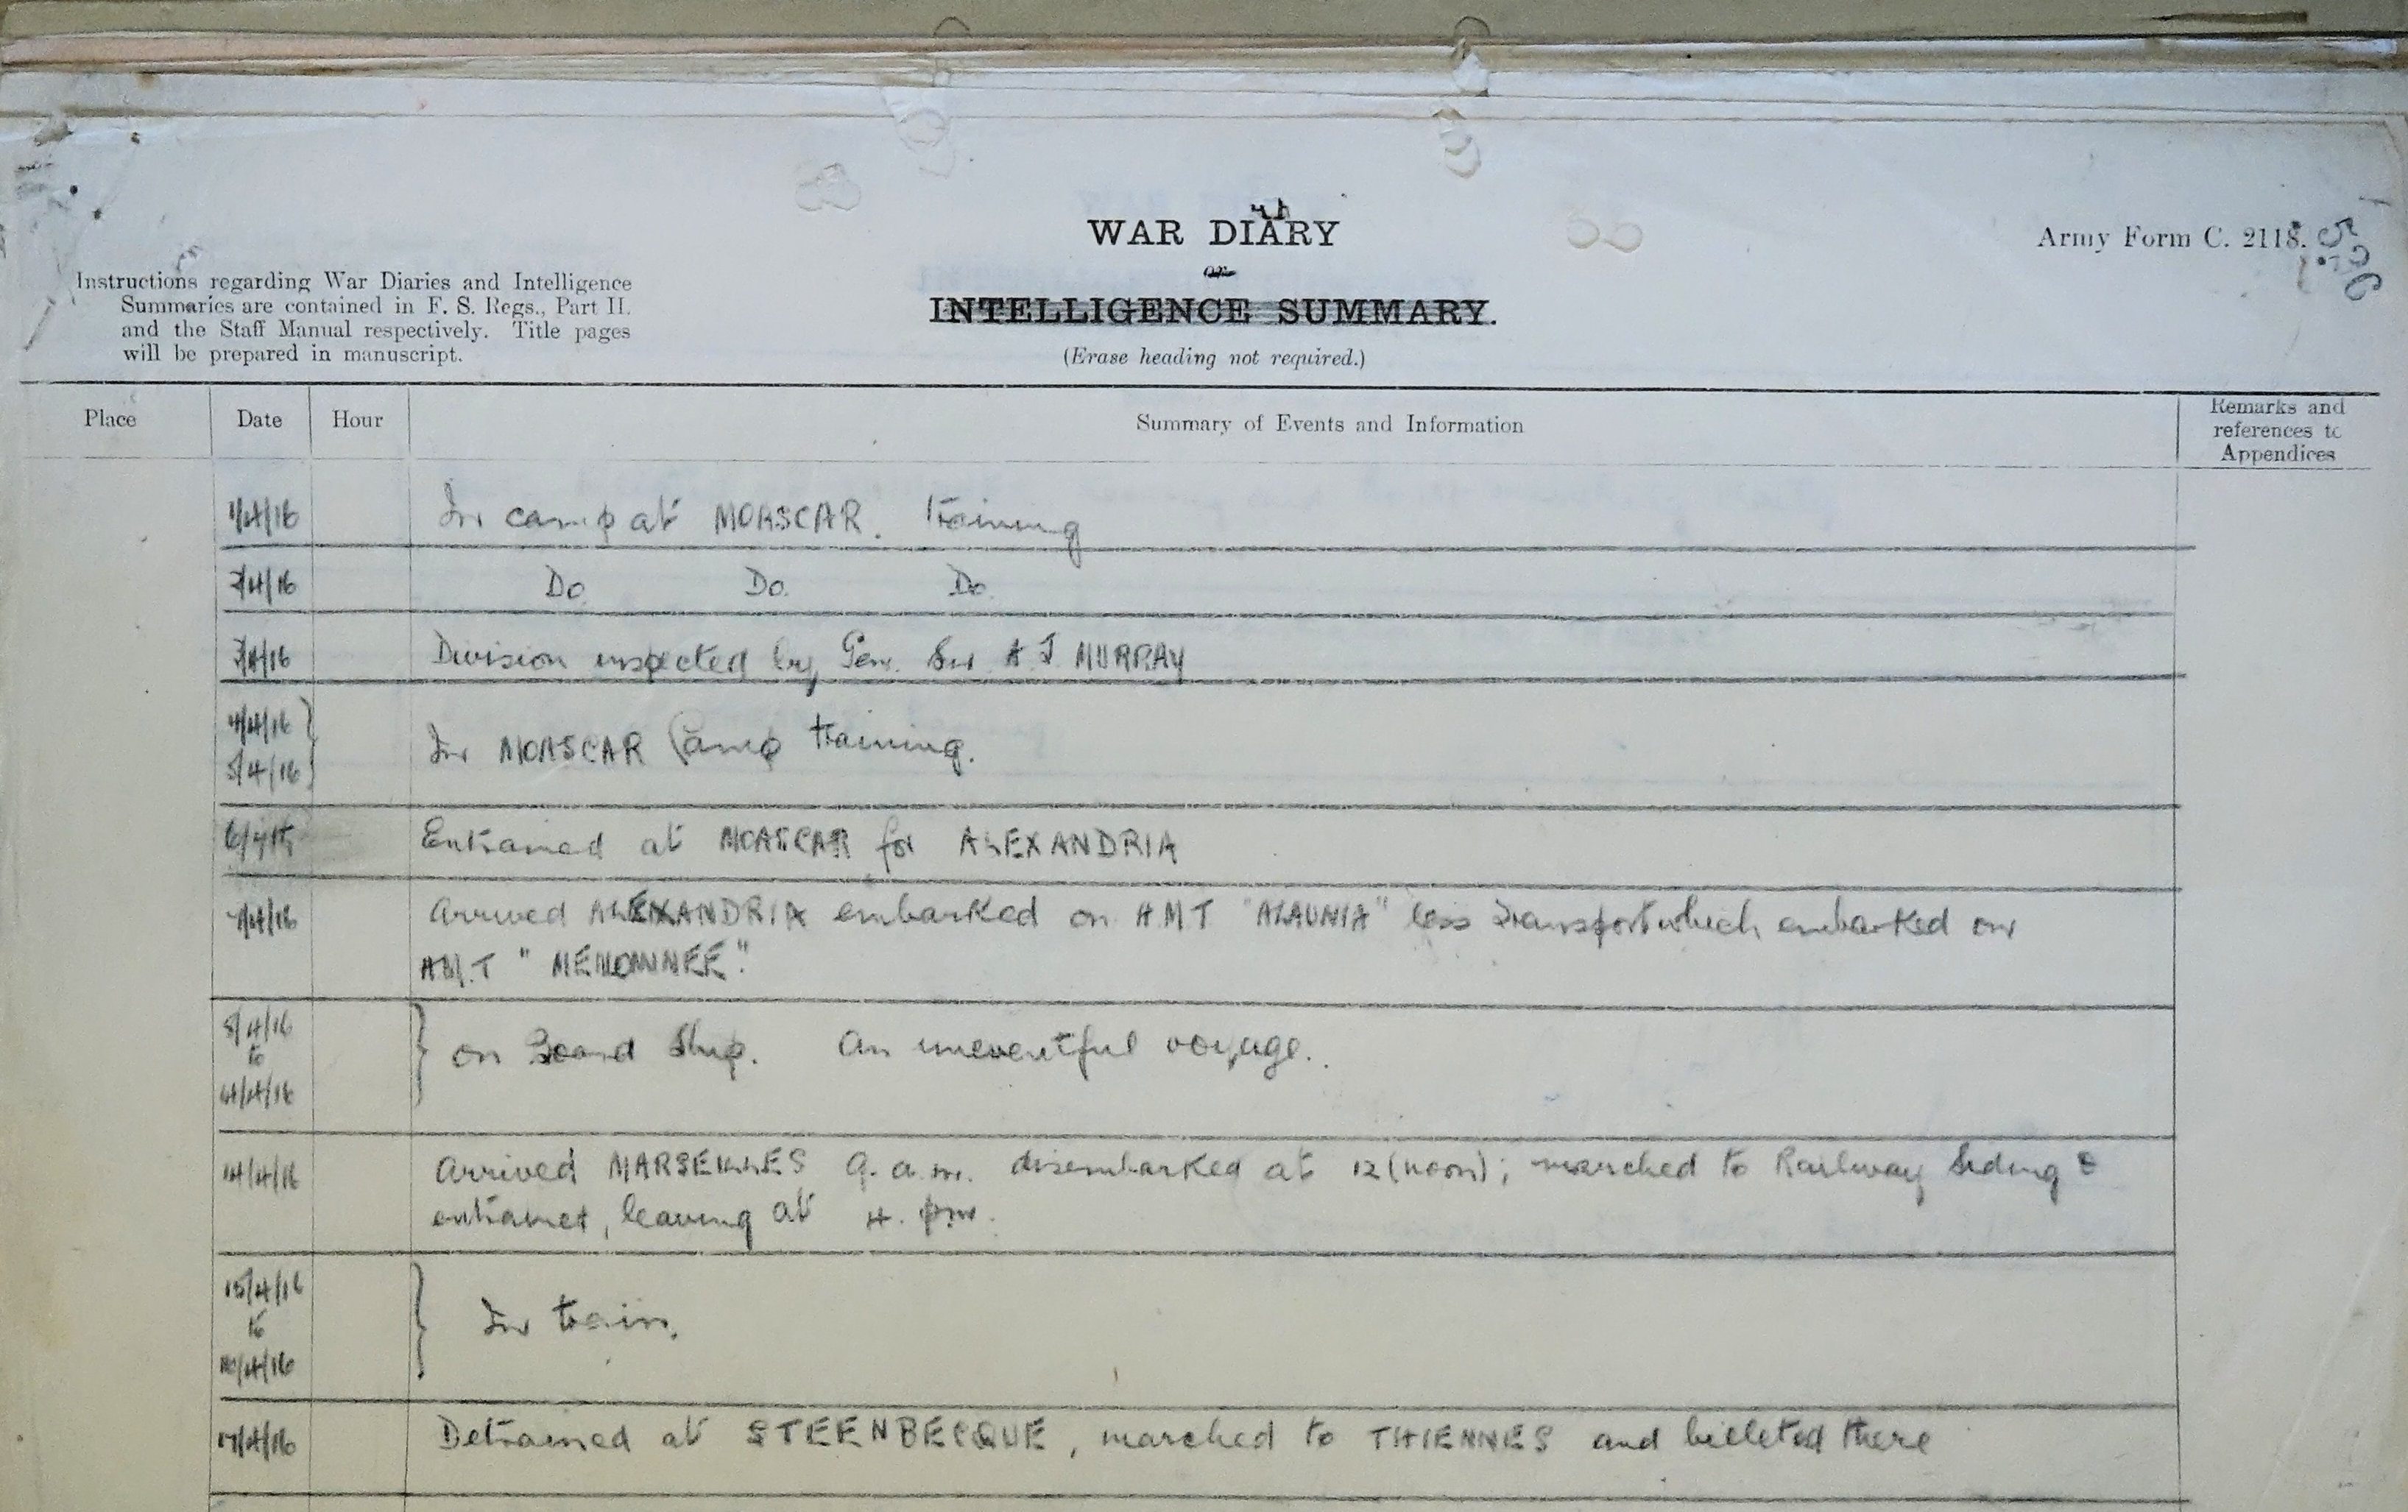 WAR DIARY
or
INTELLIGENCE SUMMARY.
(Erase heading not required.)
Army Form C. 2118.
Instructions regarding War Diaries and Intelligence
Summaries are contained in F. S. Regs., Part II.
and the Staff Manual respectively. Title pages
will be prepared in manuscript.
Place Date Hour Summary of Events and Information Remarks and
references to
Appendices
1/4/16 In camp at MOASCAR. Training
2/4/16 Do. Do. Do.
3/4/16 Division inspected by Gen. Sir A J MURRAY
4/4/16
5/4/16 In MOASCAR Camp training.
6/4/16 Entrained at MOASCAR for ALEXANDRIA
7/4/16 Arrived ALEXANDRIA embarked on HMT "ALAUNIA" less Transport which embarked on
HM.T "MENOMINEE".
8/4/16
to
14/4/16 on Board Ship. An uneventful voyage.
14/4/16 Arrived MARSEILLES 9. a.m. disembarked at 12 (noon); marched to Railway Siding &
entrained, leaving at 4. pm.
15/4/16
to
16/4/16 In train.
17/4/16 Detrained at STEENBECQUE, marched to THIENNES and billeted there